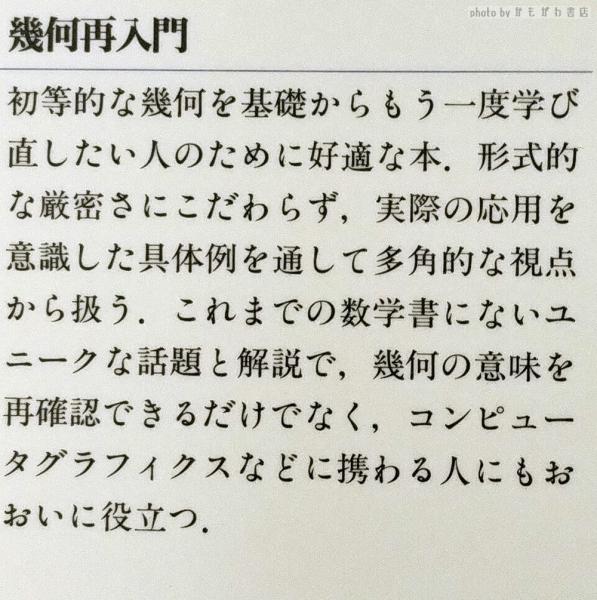 photo by かもがわ書店
幾何再入門
初等的な幾何を基礎からもう一度学び
直したい人のために好適な本．形式的
な厳密さにこだわらず，実際の応用を
意識した具体例を通して多角的な視点
から扱う．これまでの数学書にないユ
ニークな話題と解説で，幾何の意味を
再確認できるだけでなく，コンピュー
タグラフィクスなどに携わる人にもお
おいに役立つ．